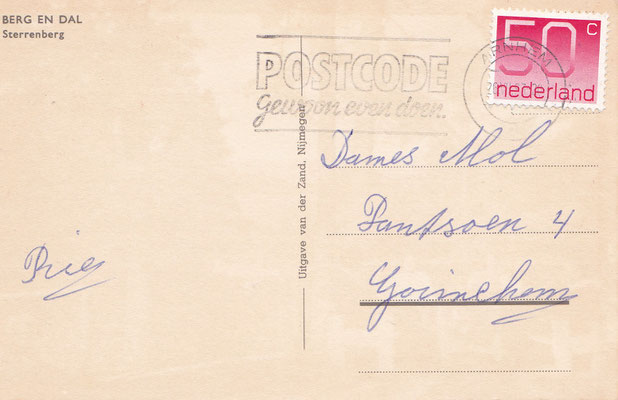 BERG EN DAL
Sterrenberg
POSTCODE
Gewoon even doen.
ARNHEM
50 c
nederland
Uitgave van der Zand, Nijmegen
Dames Mol
Pantsoen 4
Gorinchem